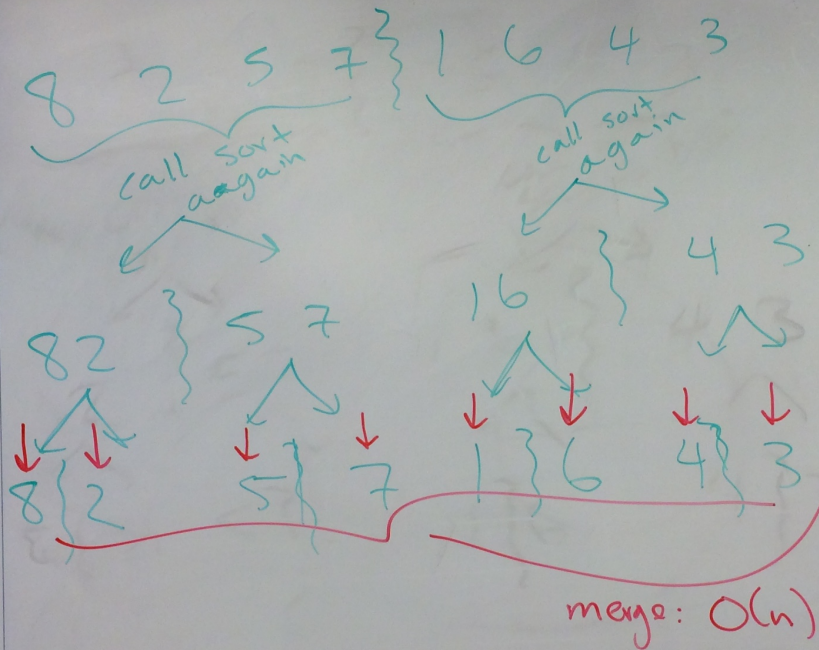 8 2 5 7 } 1 6 4 3
call sort aagain
call sort again
82 } 5 7
16 } 4 3
8 } 2 5 } 7 1 } 6 4 } 3
merge: O(n)